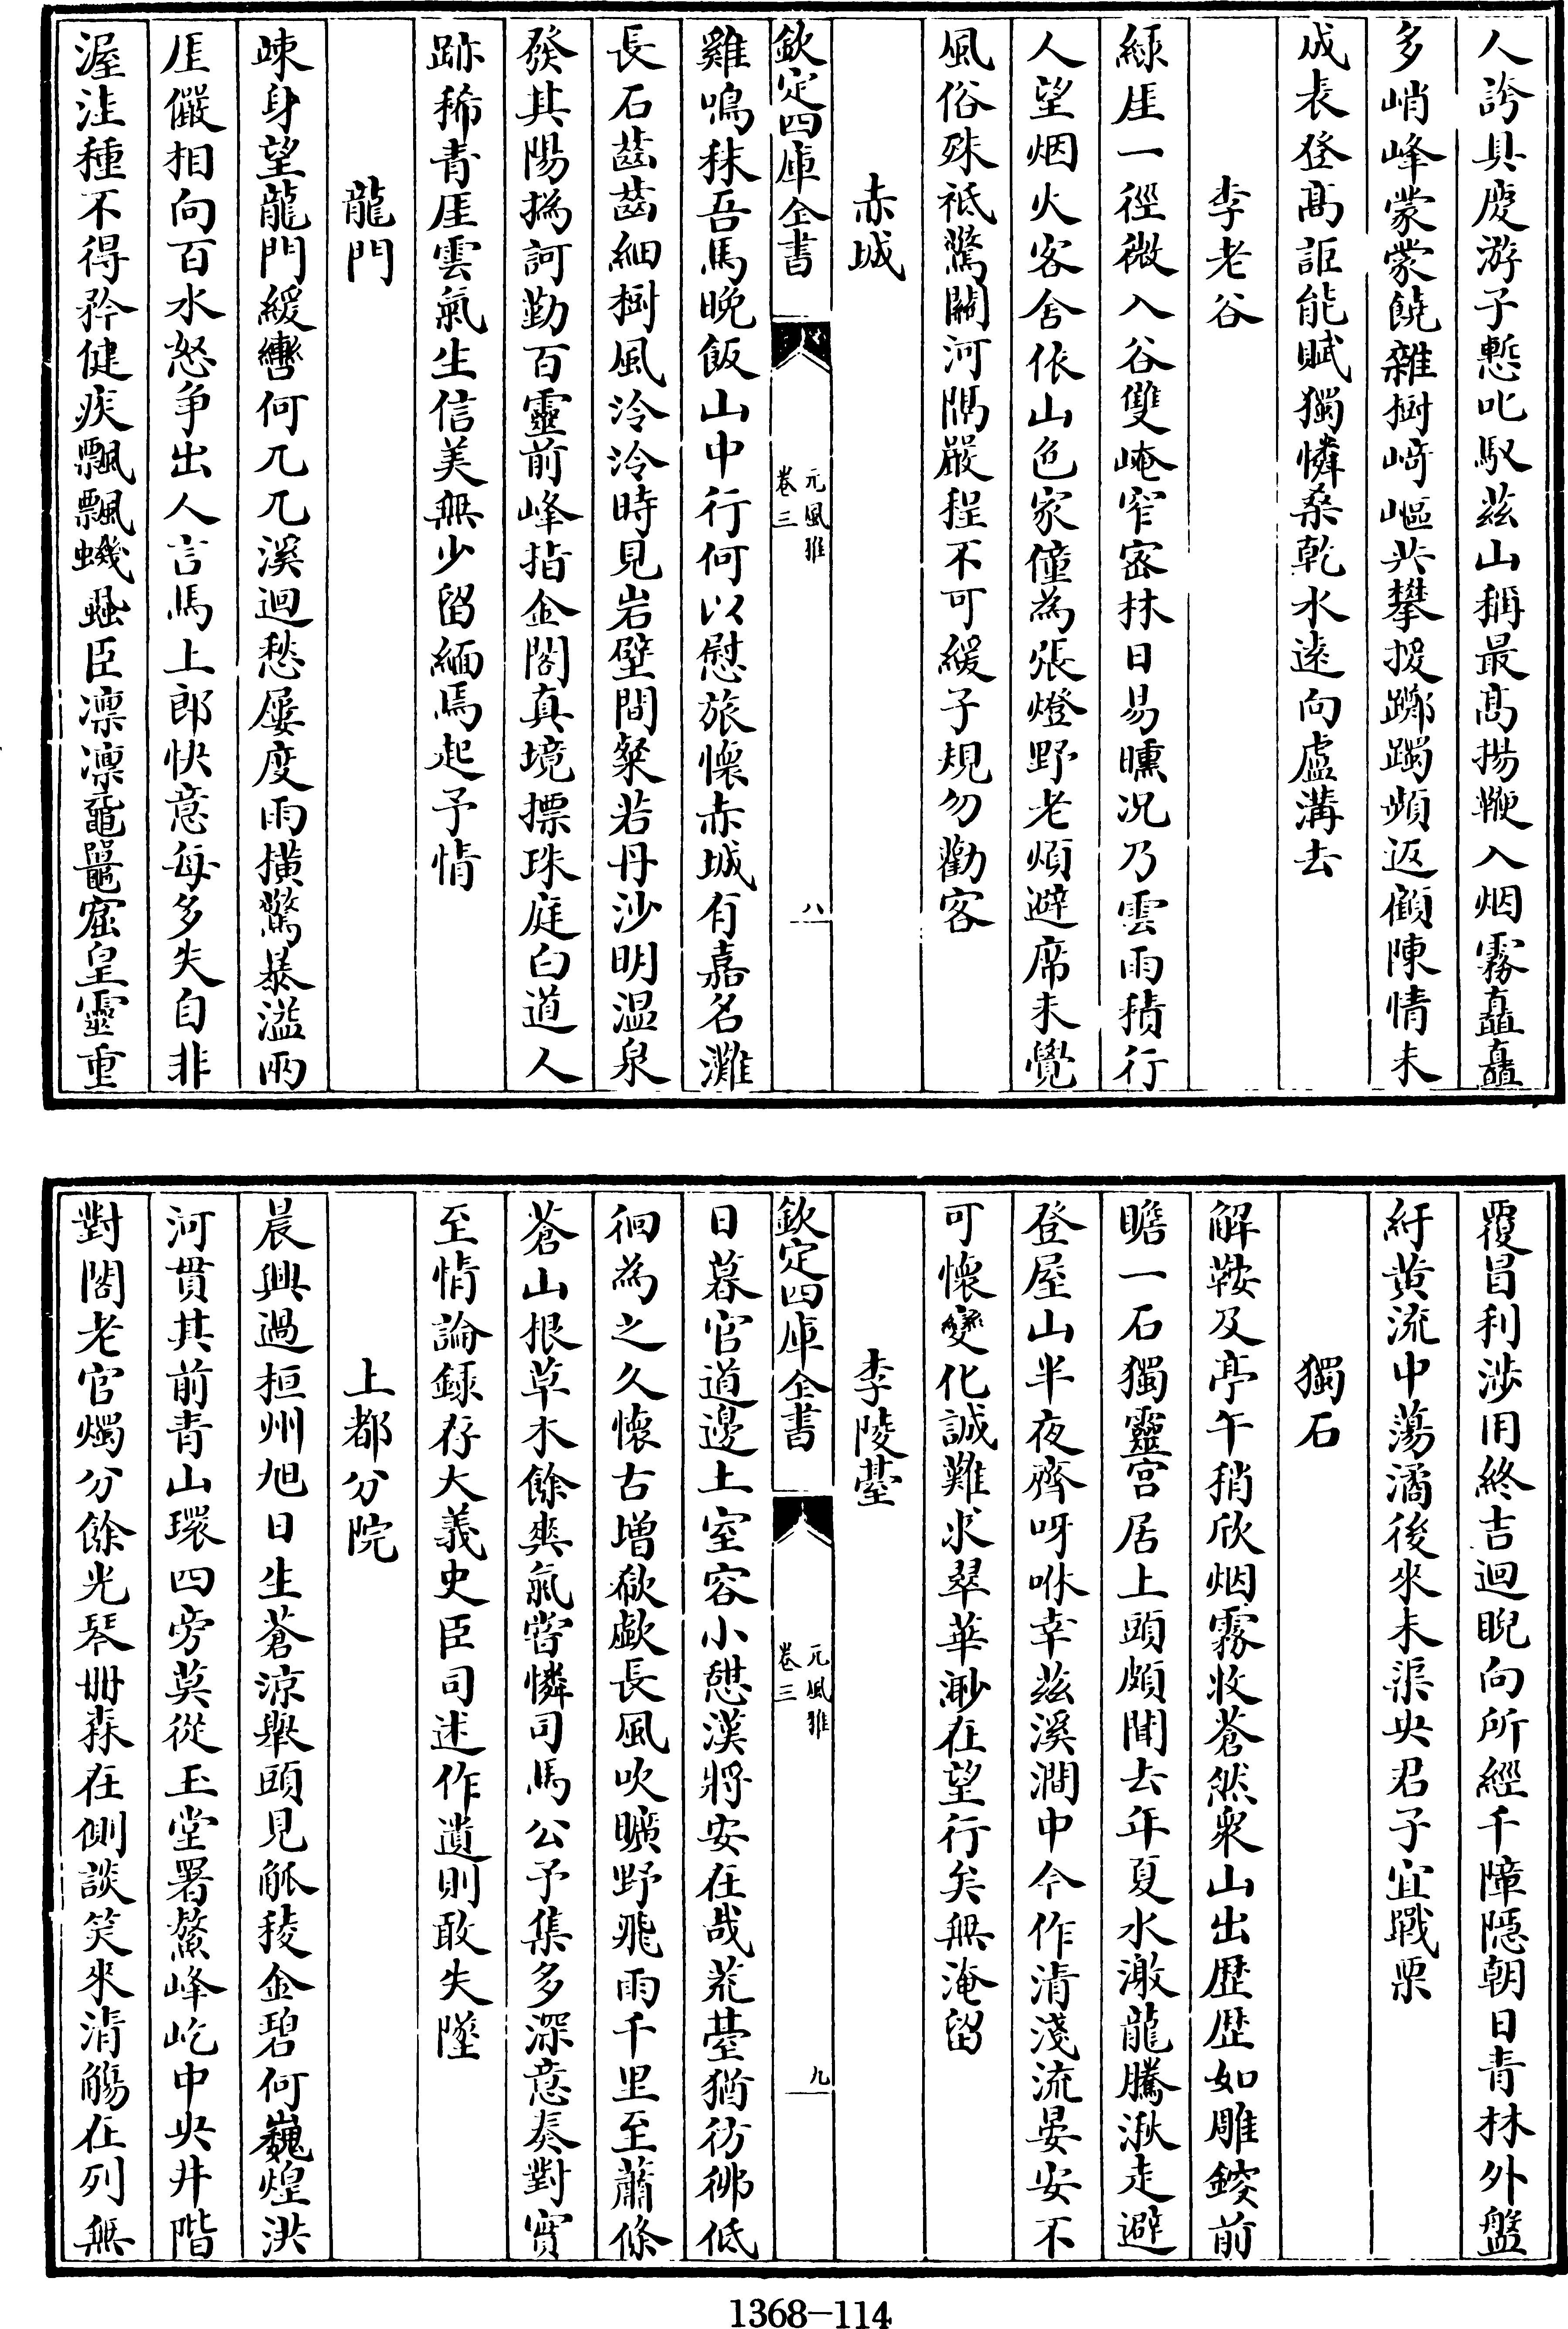 人誇具慶游子慙叱馭茲山稱最髙揚鞭入烟霧矗矗
多峭峰蒙蒙饒雜樹﨑嶇共攀援躑躅頻返顧陳情未
成表登髙詎能賦獨憐桑乾水遠向盧溝去
李老谷
緑厓一徑微入谷雙崦窄宻林日易曛况乃雲雨積行
人望烟火客舍依山色家僮為張燈野老煩避席未覺
風俗殊祇驚闗河隔嚴程不可緩子規勿勸客
赤城
雞鳴秣吾馬晚飯山中行何以慰旅懷赤城有嘉名灘
長石齒齒細樹風泠泠時見岩壁間粲若丹沙明温泉
發其陽撝訶勤百靈前峰指金閣真境摽珠庭白道人
跡稀青厓雲氣生信美無少留緬焉起予情
龍門
竦身望龍門緩轡何兀兀溪迴愁屢度雨横驚暴溢兩
厓儼相向百水怒争出人言馬上郎快意每多失自非
渥洼種不得矜健疾飄飄蟣蝨臣凛凛黿鼉窟皇靈重
欽定四庫全書
元風雅
卷三
八
覆冒利涉用終吉迴睨向所經千障隠朝日青林外盤
紆黄流中蕩潏後來未渠央君子宜戰栗
獨石
解鞍及亭午稍欣烟霧收蒼然衆山出歴歴如雕鎪前
瞻一石獨靈宫居上頭頗聞去年夏水激龍騰湫走避
登屋山半夜齊呀咻幸茲溪澗中今作清淺流晏安不
可懷變化誠難求翠華渺在望行矣無淹留
李陵䑓
日暮官道邊土室容小憇漢將安在哉荒䑓猶彷彿低
徊為之久懷古増欷歔長風吹曠野飛雨千里至蕭條
蒼山根草木餘爽氣嘗憐司馬公予集多深意奏對實
至情論録存大義史臣司述作遺則敢失墜
上都分院
晨興過桓州旭日生蒼涼舉頭見觚稜金碧何巍煌洪
河貫其前青山環四旁莫從玉堂署鰲峰屹中央井階
對閣老官燭分餘光琴冊森在側談笑來清觴在列無
欽定四庫全書
元風雅
卷三
九
1368-114